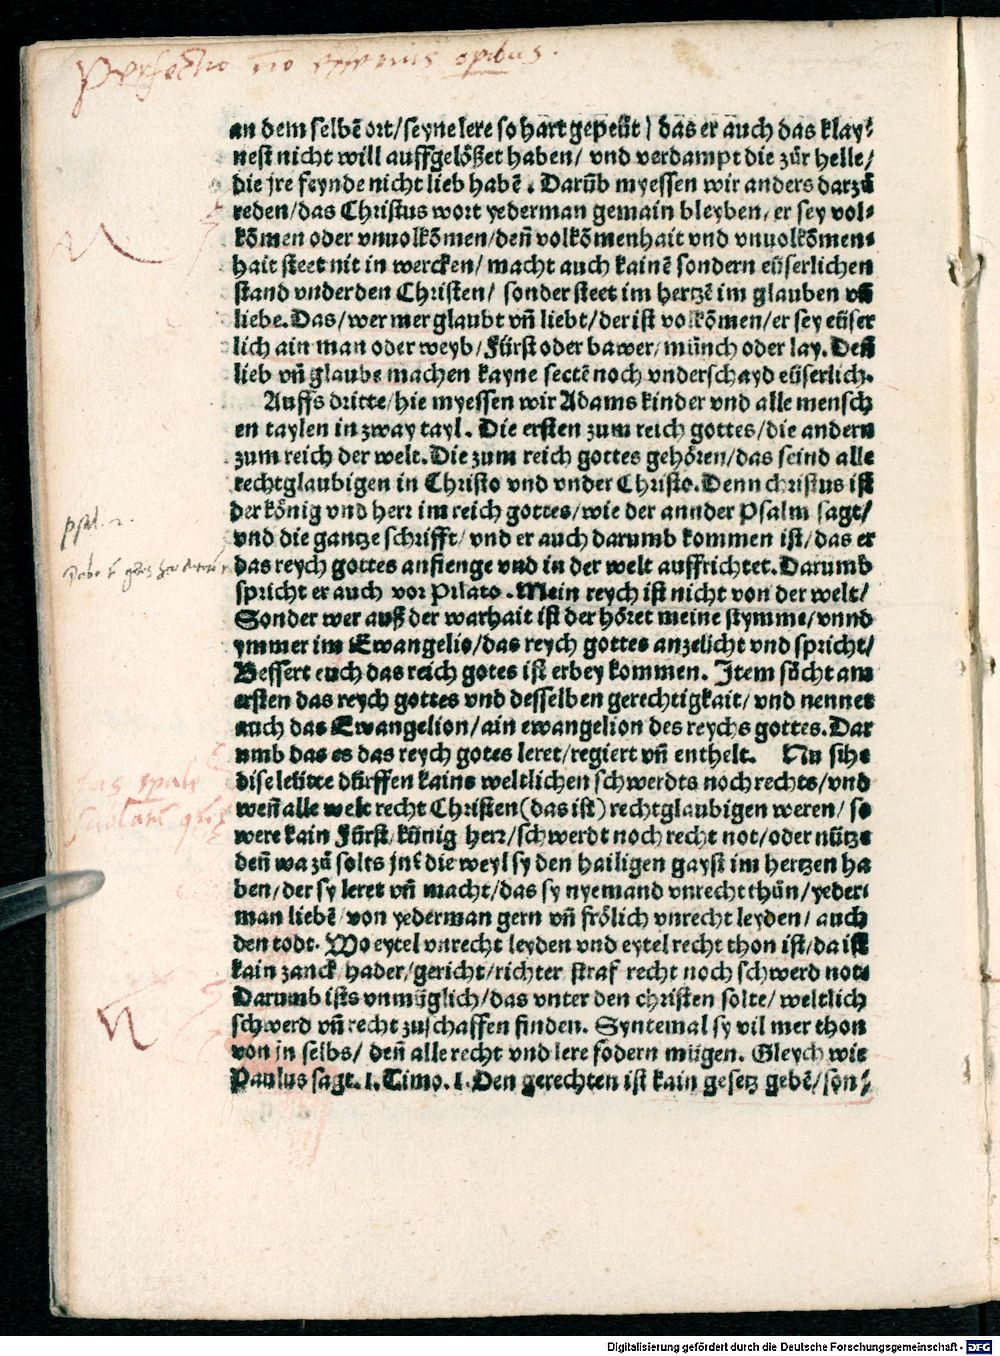 Perfectio no externis opibus.
an dem selbē ort/seyne lere so hart gepeüt) das er auch das klay⸗
nest nicht will auffgelößet haben/ vnd verdampt die zůr helle/
die jre feynde nicht lieb habē. Darūb myessen wir anders darzů
reden/das Christus wort yederman gemain bleyben/ er sey vol⸗
kōmen oder vnuolkōmen/deñ volkōmenhait vnd vnuolkōmen⸗
hait steet nit in wercken/ macht auch kainē sondern eüserlichen
stand vnder den Christen/ sonder steet im hertzē im glauben vñ
liebe. Das/wer mer glaubt vñ liebt/der ist volkōmen/er sey eüser
lich ain man oder weyb/Fürst oder bawer/münch oder lay. Deñ
lieb vñ glaube machen kayne sectē noch vnderschayd eüserlich.
Auffs dritte/hie myessen wir Adams kinder vnd alle mensch
en taylen in zway tayl. Die ersten zum reich gottes/die andern
zum reich der welt. Die zum reich gottes gehören/das seind alle
rechtglaubigen in Christo vnd vnder Christo. Denn christus ist
der könig vnd herr im reich gottes/wie der annder Psalm sagt/
psal. 2.
vnd die gantze schrifft/ vnd er auch darumb kommen ist/das er
das reych gottes anfienge vnd in der welt auffrichtet. Darumb
spricht er auch vor Pilato. Mein reych ist nicht von der welt/
Sonder wer auß der warhait ist der höret meine stymme/vnnd
ymmer im Ewangelio/das reych gottes anzelicht vnd spricht/
Bessert euch das reich gotes ist erbey kommen. Item sůcht am
ersten das reych gottes vnd desselben gerechtigkait/ vnd nennet
auch das Ewangelion/ain ewangelion des reychs gottes. Dar
umb das es das reych gotes leret/regiert vñ enthelt. Nu sihe
dise leütte dürffen kains weltlichen schwerdts noch rechts/vnd
weñ alle welt recht Christen(das ist) rechtglaubigen weren/ so
were kain Fürst/künig herr/schwerdt noch recht not/oder nütze
deñ wa zů solts jnē die weyl sy den hailigen gayst im hertzen ha
ben/der sy leret vñ macht/das sy nyemand vnrecht thůn/yeder⸗
man liebē/von yederman gern vñ frölich vnrecht leyden/ auch
den todt. Wo eytel vnrecht leyden vnd eytel recht thon ist/da ist
kain zanck/hader/gericht/richter straf recht noch schwerd not.
Darumb ists vnmüglich/das vnter den christen solte/ weltlich
schwerd vñ recht zuschaffen finden. Syntemal sy vil mer thon
von jn selbs/ deñ alle recht vnd lere fodern mügen. Gleych wie
Paulus sagt. 1. Timo. 1. Den gerechten ist kain gesetz gebē/son⸗
Digitalisierung gefördert durch die Deutsche Forschungsgemeinschaft - DFG